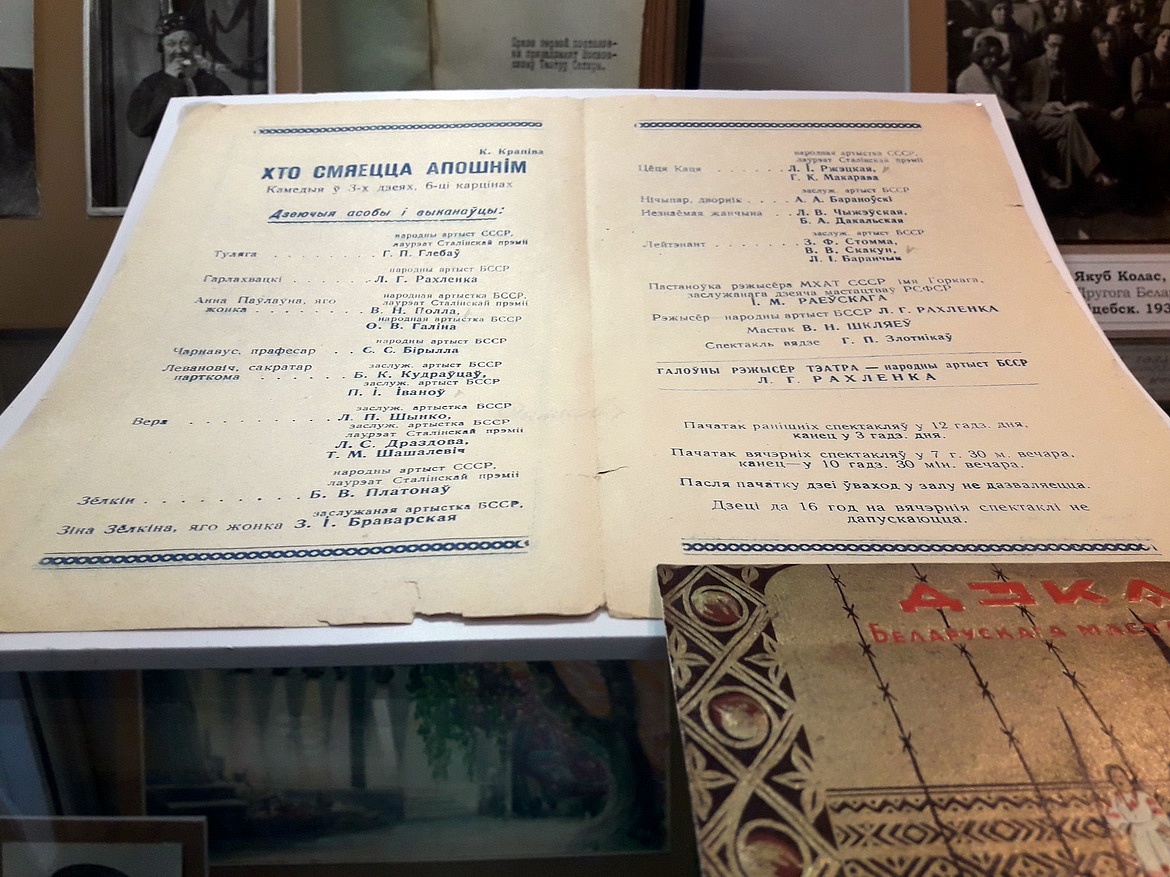 К. Крапіва
ХТО СМЯЕЦЦА АПОШНІМ
Камедыя ў 3-х дзеях, 6-ці карцінах
Дзеючыя асобы і выканаўцы:
народны артыст СССР,
лаурэат Сталінскай прэміі
Туляга . . . . . . . . . . Г. П. Глебаў
народны артыст БССР
Гарлахвацкі . . . . . . . Л. Г. Рахленка
народная артыстка БССР,
Анна Паўлаўна, яго лаурэат Сталінскай прэміі
жонка . . . . . . . . . . В. Н. Полла,
народная артыстка БССР
О. В. Галіна
народны артыст БССР
Чарнавус, прафесар . . С. С. Бірылла
Левановіч, сакратар заслуж. артыст БССР
парткома . . . . . . . Б. К. Кудраўцаў,
заслуж. артыст БССР
П. І. Іваноў
заслуж. артыстка БССР
Вера . . . . . . . . . . Л. П. Шынко,
заслуж. артыстка БССР
лаурэат Сталінскай прэміі
Л. С. Драздова,
Т. М. Шашалевіч
народны артыст СССР,
лаурэат Сталінскай прэміі
Зёлкін . . . . . . . . . . Б. В. Платонаў
заслужаная артыстка БССР,
Зіна Зёлкіна, яго жонка З. І. Браварская
народная артыстка СССР,
лаурэат Сталінскай прэміі
Цёця Каця . . . . . . Л. І. Ржэцкая,
Г. К. Макарава
заслуж. артыст БССР
Нічыпар, дворнік . . . А. А. Бараноўскі
Незнаёмая жанчына . . Л. В. Чыжэўская,
Б. А. Дакальская
заслуж. артыст БССР
Лейтэнант . . . . . . . З. Ф. Стомма,
В. В. Скакун,
Л. І. Баранчык
Пастаноўка рэжысёра МХАТ СССР імя Горкага,
заслужанага дзеяча мастацтваў РСФСР
І. М. РАЕЎСКАГА
Рэжысёр народны артыст БССР Л. Г. РАХЛЕНКА
Мастак В. Н. ШКЛЯЕЎ
Спектакль вядзе Г. П. Злотнікаў
ГАЛОЎНЫ РЭЖЫСЁР ТЭАТРА — народны артыст БССР
Л. Г. РАХЛЕНКА
Пачатак ранішніх спектакляў у 12 гадз. дня,
канец у 3 гадз. дня.
Пачатак вячэрніх спектакляў у 7 г. 30 м. вечара,
канец — у 10 гадз. 30 мін. вечара.
Пасля пачатку дзеі ўваход у залу не дазваляецца.
Дзеці да 16 год на вячэрнія спектаклі не
дапускаюцца.
Якуб Колас,
Другога Бела
цебск. 193
ДЭКА
БЕЛАРУСКАГА МАСТ